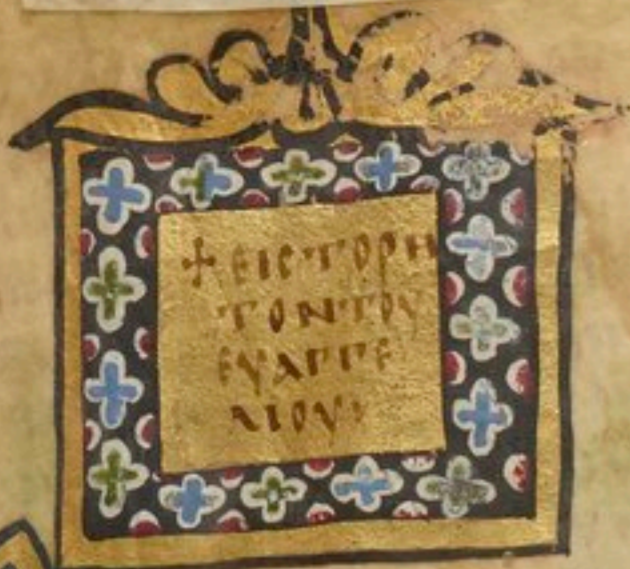 + ΕΙϹ ΤΟ ΡΗ
ΤΟΝ ΤΟΥ
ΕΥΑΓΓΕ
ΛΙΟΥ